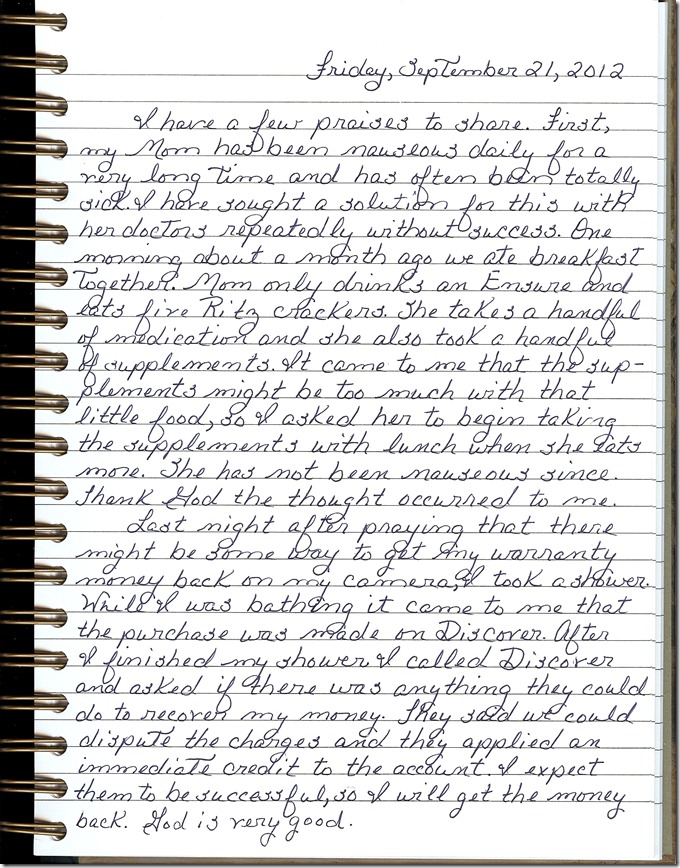 Friday, September 21, 2012
I have a few praises to share. First,
my Mom has been nauseous daily for a
very long time and has often been totally
sick. I have sought a solution for this with
her doctors repeatedly without success. One
morning about a month ago we ate breakfast
together. Mom only drinks an Ensure and
eats five Ritz crackers. She takes a handful
of medication and she also took a handful
of supplements. It came to me that the sup-
plements might be too much with that
little food, so I asked her to begin taking
the supplements with lunch when she eats
more. She has not been nauseous since.
Thank God the thought occurred to me.
Last night after praying that there
might be some way to get my warranty
money back on my camera, I took a shower.
While I was bathing it came to me that
the purchase was made on Discover. After
I finished my shower I called Discover
and asked if there was anything they could
do to recover my money. They said we could
dispute the charges and they applied an
immediate credit to the account. I expect
them to be successful, so I will get the money
back. God is very good.